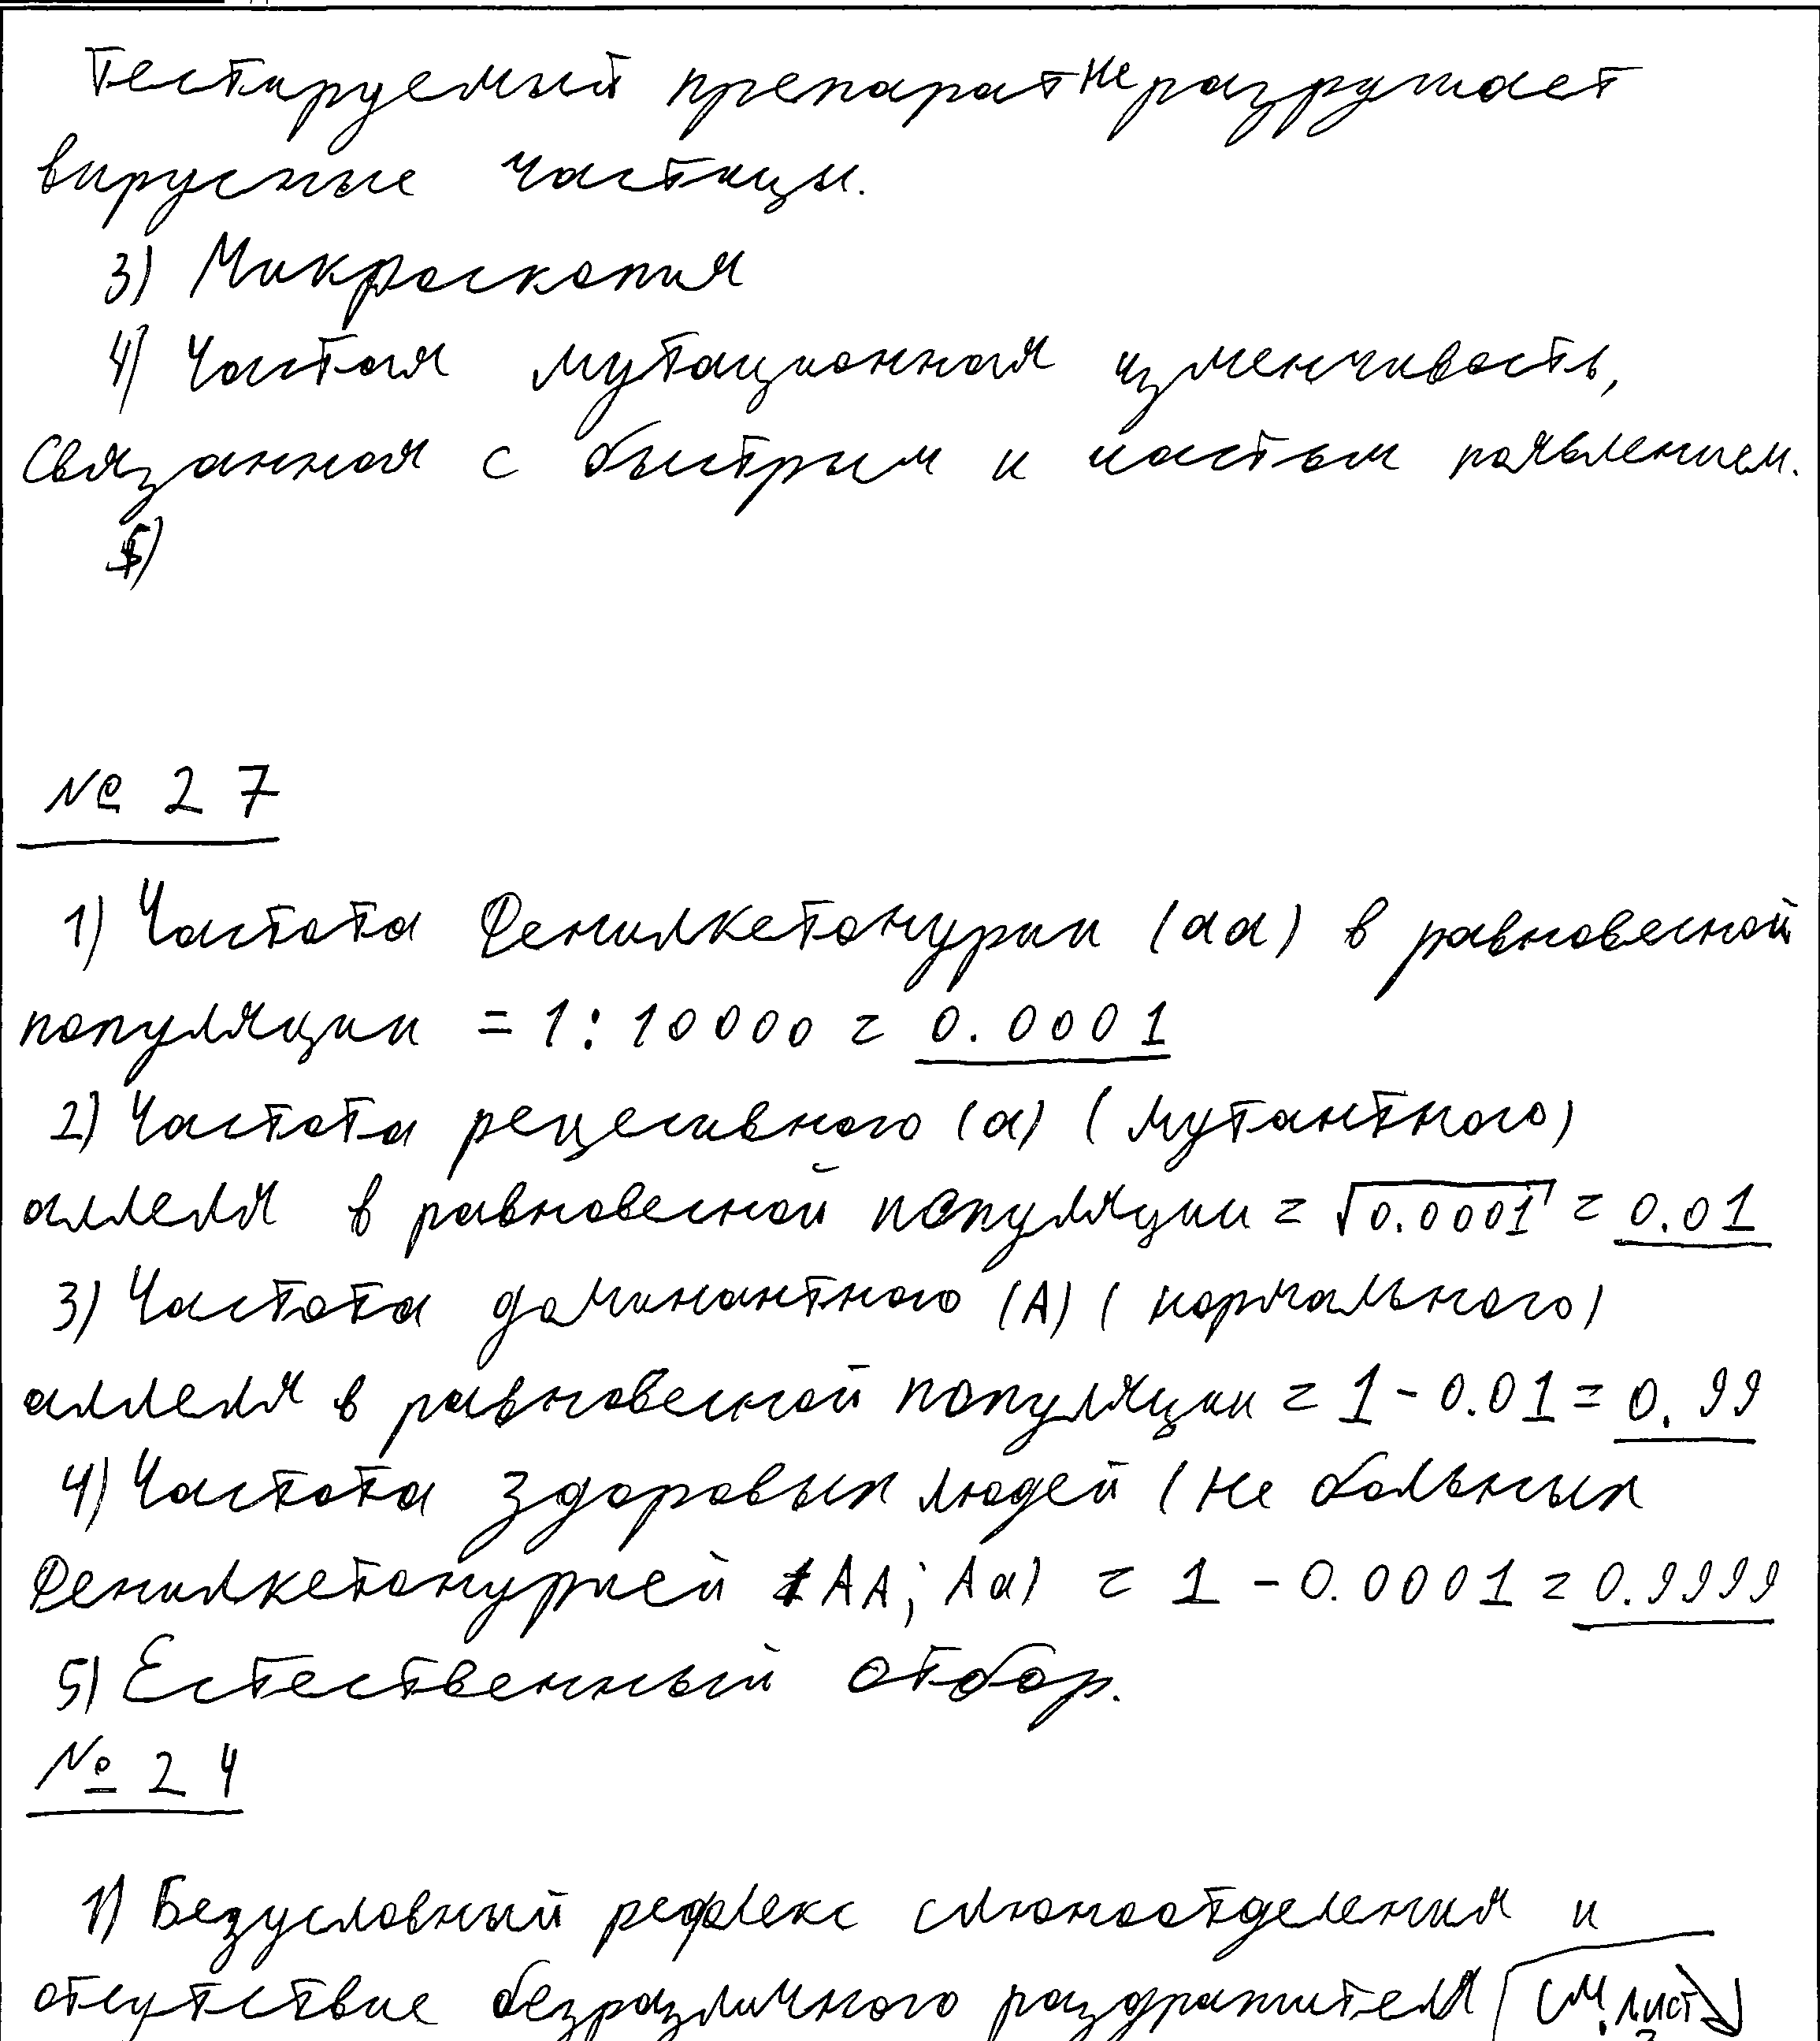 Тестируемый препарат не разрушает
вирусные частицы.
3) Микроскопия
4) Частая мутационная изменчивость,
связанная с быстрым и частым появлением.
5)
№ 27
1) Частота Фенилкетонурии (аа) в равновесной
популяции = 1 : 10000 = 0.0001
2) Частота рецесивного (а) (мутантного)
аллеля в равновесной популяции = √0.0001 = 0.01
3) Частота доминантного (А) (нормального)
аллеля в равновесной популяции = 1 - 0.01 = 0.99
4) Частота здоровых людей (не больных
Фенилкетонурией АА; Аа) = 1 - 0.0001 = 0.9999
5) Естественный отбор.
№ 24
1) Безусловный рефлекс слюноотделения и
отсутствие безразличного раздражителя см. лист